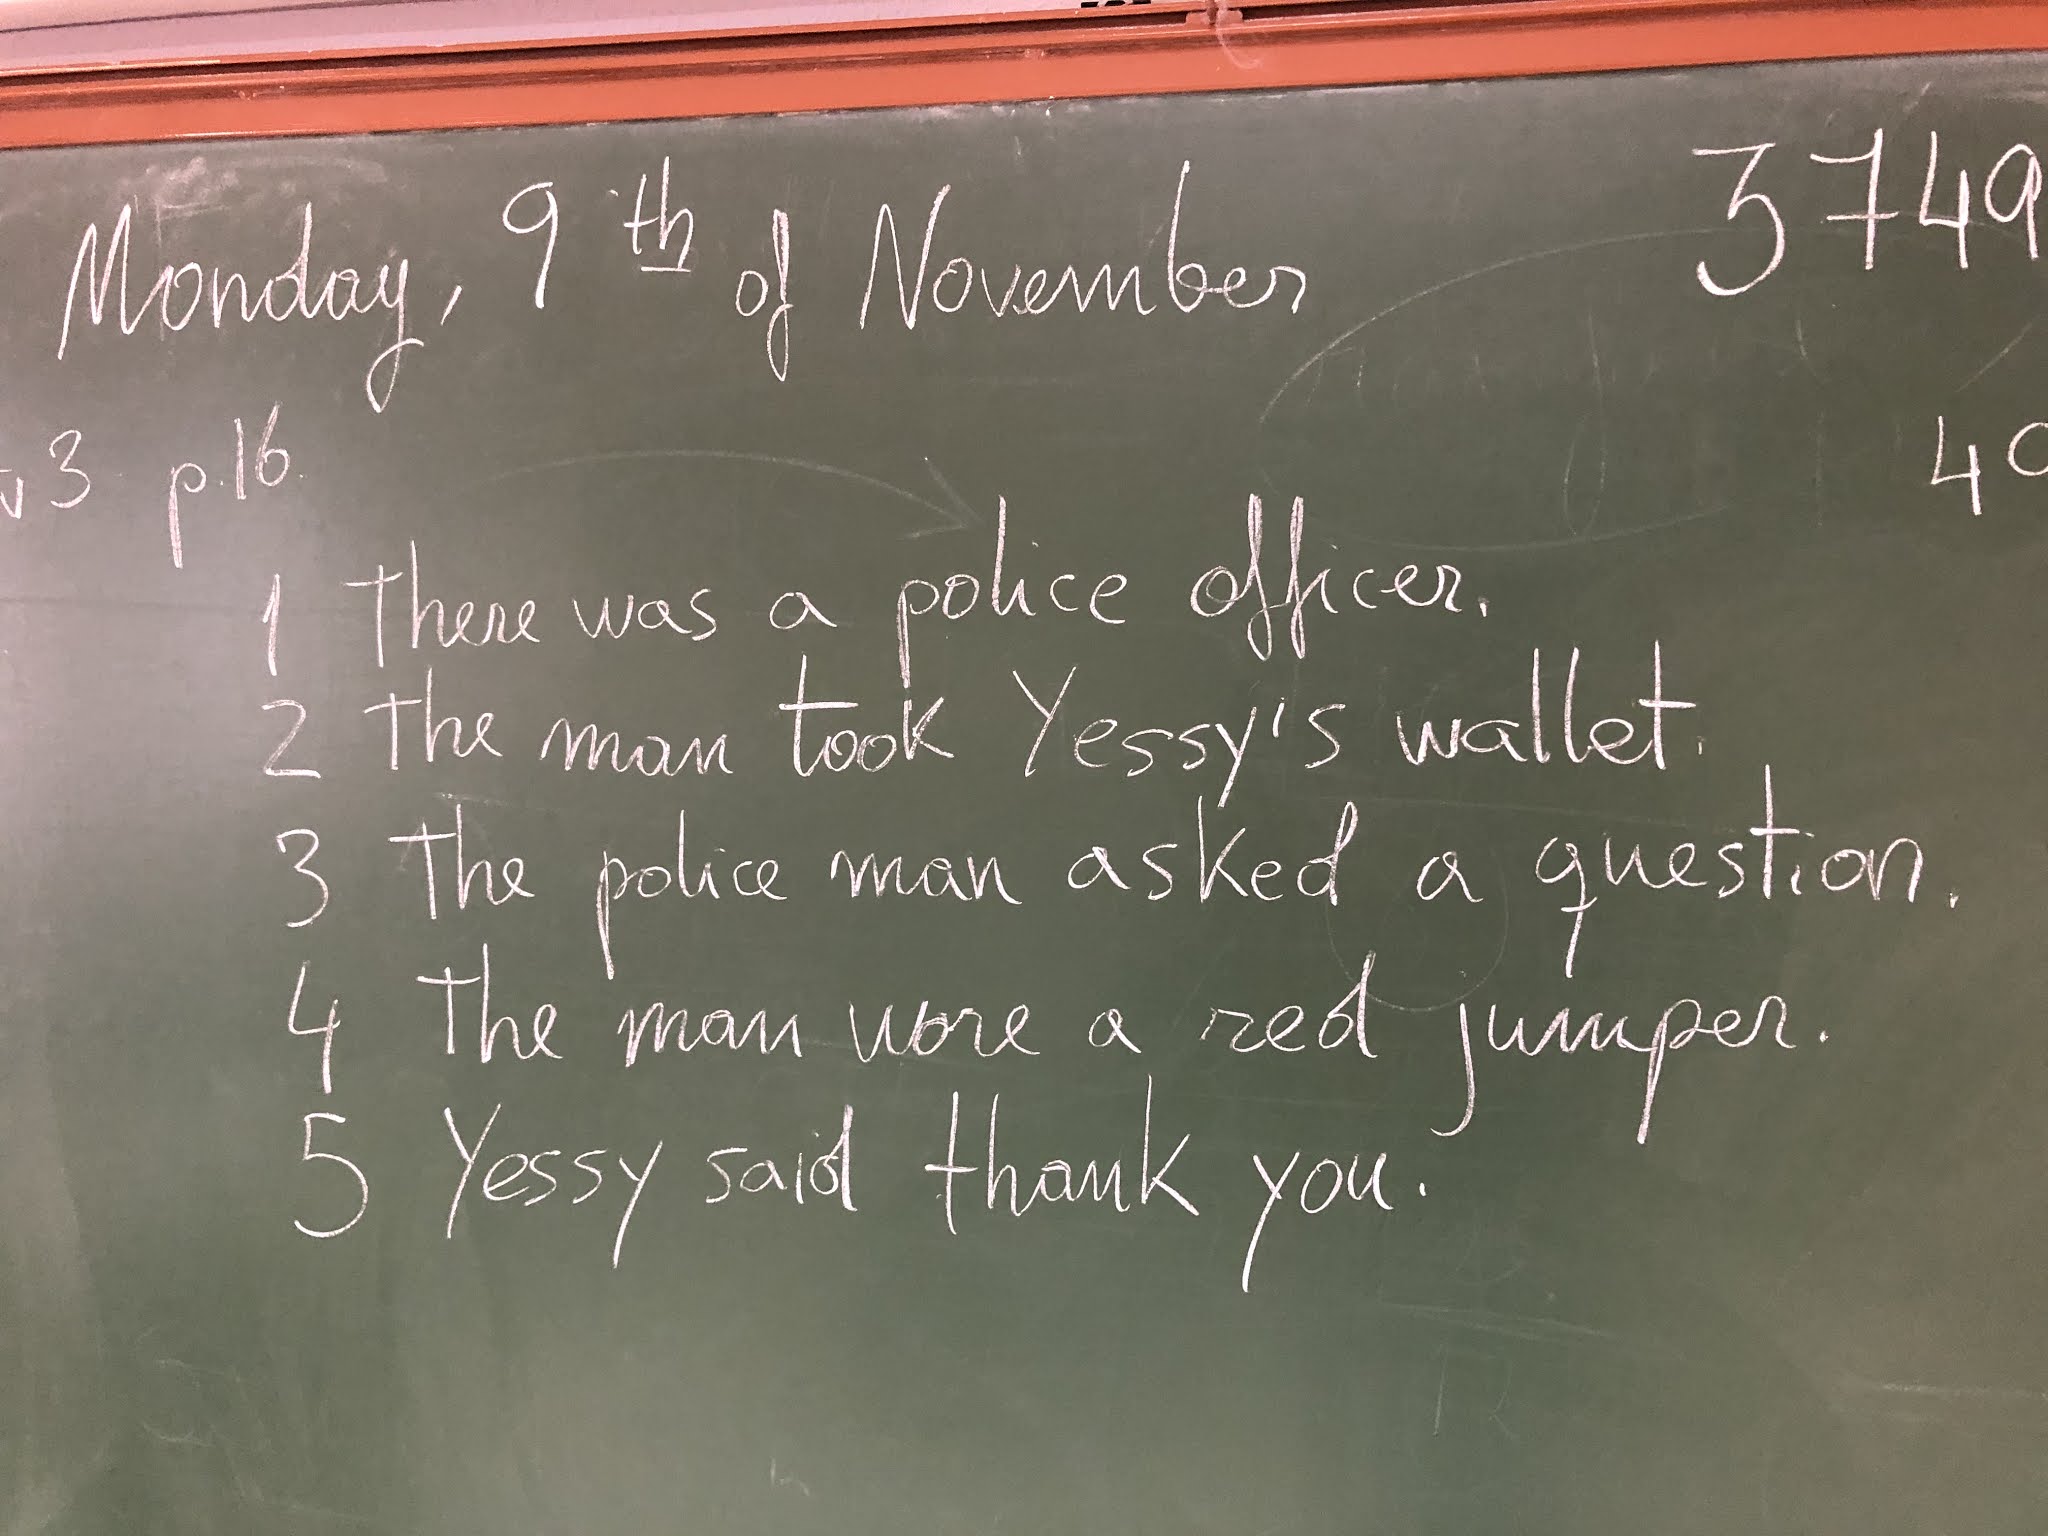 Monday, 9th of November 3749
v 3 p.16. 40
1 There was a police officer.
2 The man took Yessy's wallet.
3 The police man asked a question.
4 The man wore a red jumper.
5 Yessy said thank you.